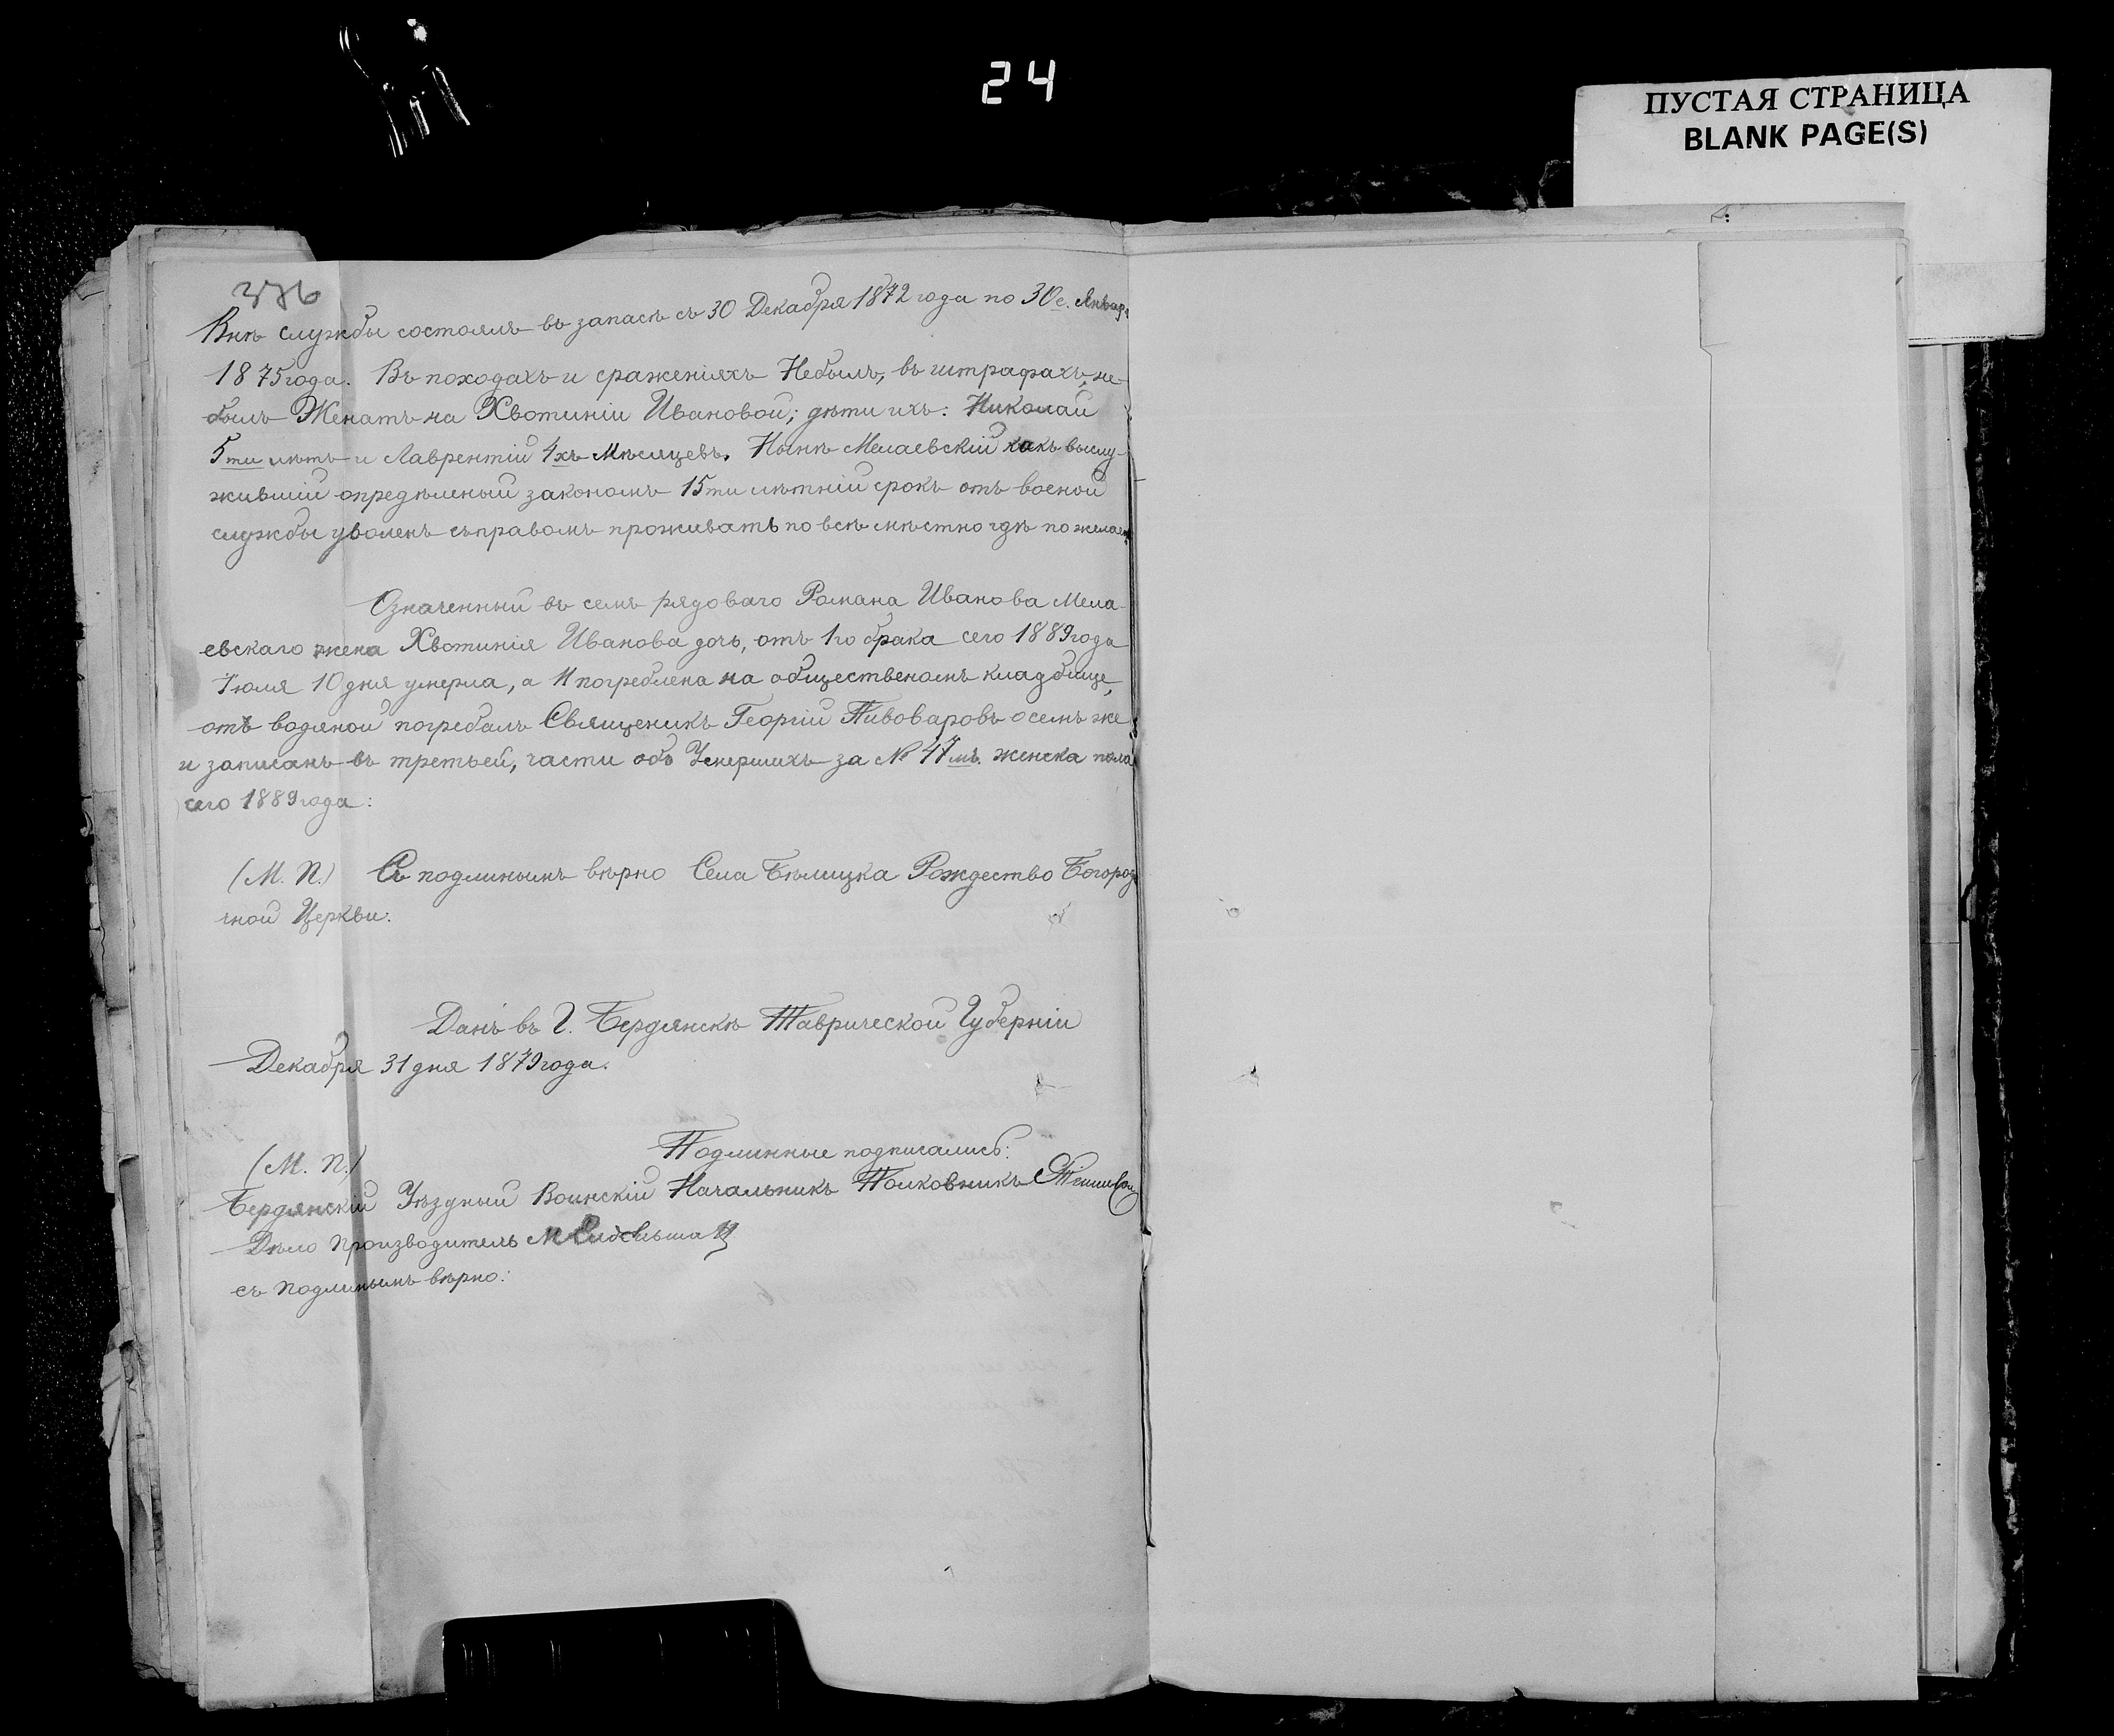 24
ПУСТАЯ СТРАНИЦА
BLANK PAGE(S)
376
Внѣ службы состоялъ въ запасѣ съ 30 Декабря 1872 года по 30е. Январ
1875 года. Въ походахъ и сраженіяхъ Небылъ, въ штрафахъ, не-
былъ Женатъ на Хвотиніи Ивановой; дѣти ихъ: Николай
5ти лѣтъ и Лаврентій 4хъ Мѣсяцевъ. Нынѣ Мелаевскій какъ выслу-
жившій опредѣленый закономъ 15ти лѣтній срокъ отъ военой
службы уволенъ съправомъ проживать по всѣ мѣстно гдѣ пожелает
Означенный въ семъ рядоваго Романа Иванова Мела-
евскаго жена Хвотинія Иванова дочь, отъ 1го брака сего 1889 года
Іюля 10 дня умерла, а 11 погреблена на общественомъ кладбище,
отъ водяной погребалъ Священикъ Георгій Пивоваровъ о семъ же
и записанъ въ третьей, части объ Умершихъ за № 47мъ. женска пола
сего 1889 года:
(М. П.) Съ подлинымъ вѣрно Села Бѣлицка Рождество Богород
чной Церкви.
Данъ въ Г. Бердянскѣ Таврической Губерніи
Декабря 31 дня 1879 года.
Подлинные подписались:
(М. П.)
Бердянскій Уѣздный Воинскій Начальникъ Полковникъ
Дѣло Производитель
съ Подлинымъ вѣрно: